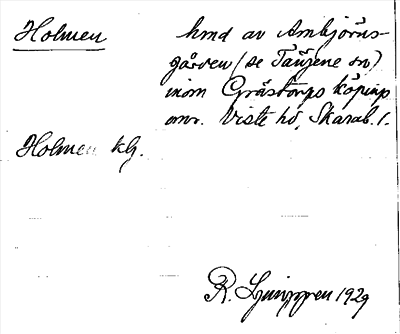 Holmen
hmd av Ambjörns-
gården (se Tängene sn)
inom Grästorps köpings
omr. Viste hd, Skarab. l.
Holmen kg.
R. Ljunggren 1929